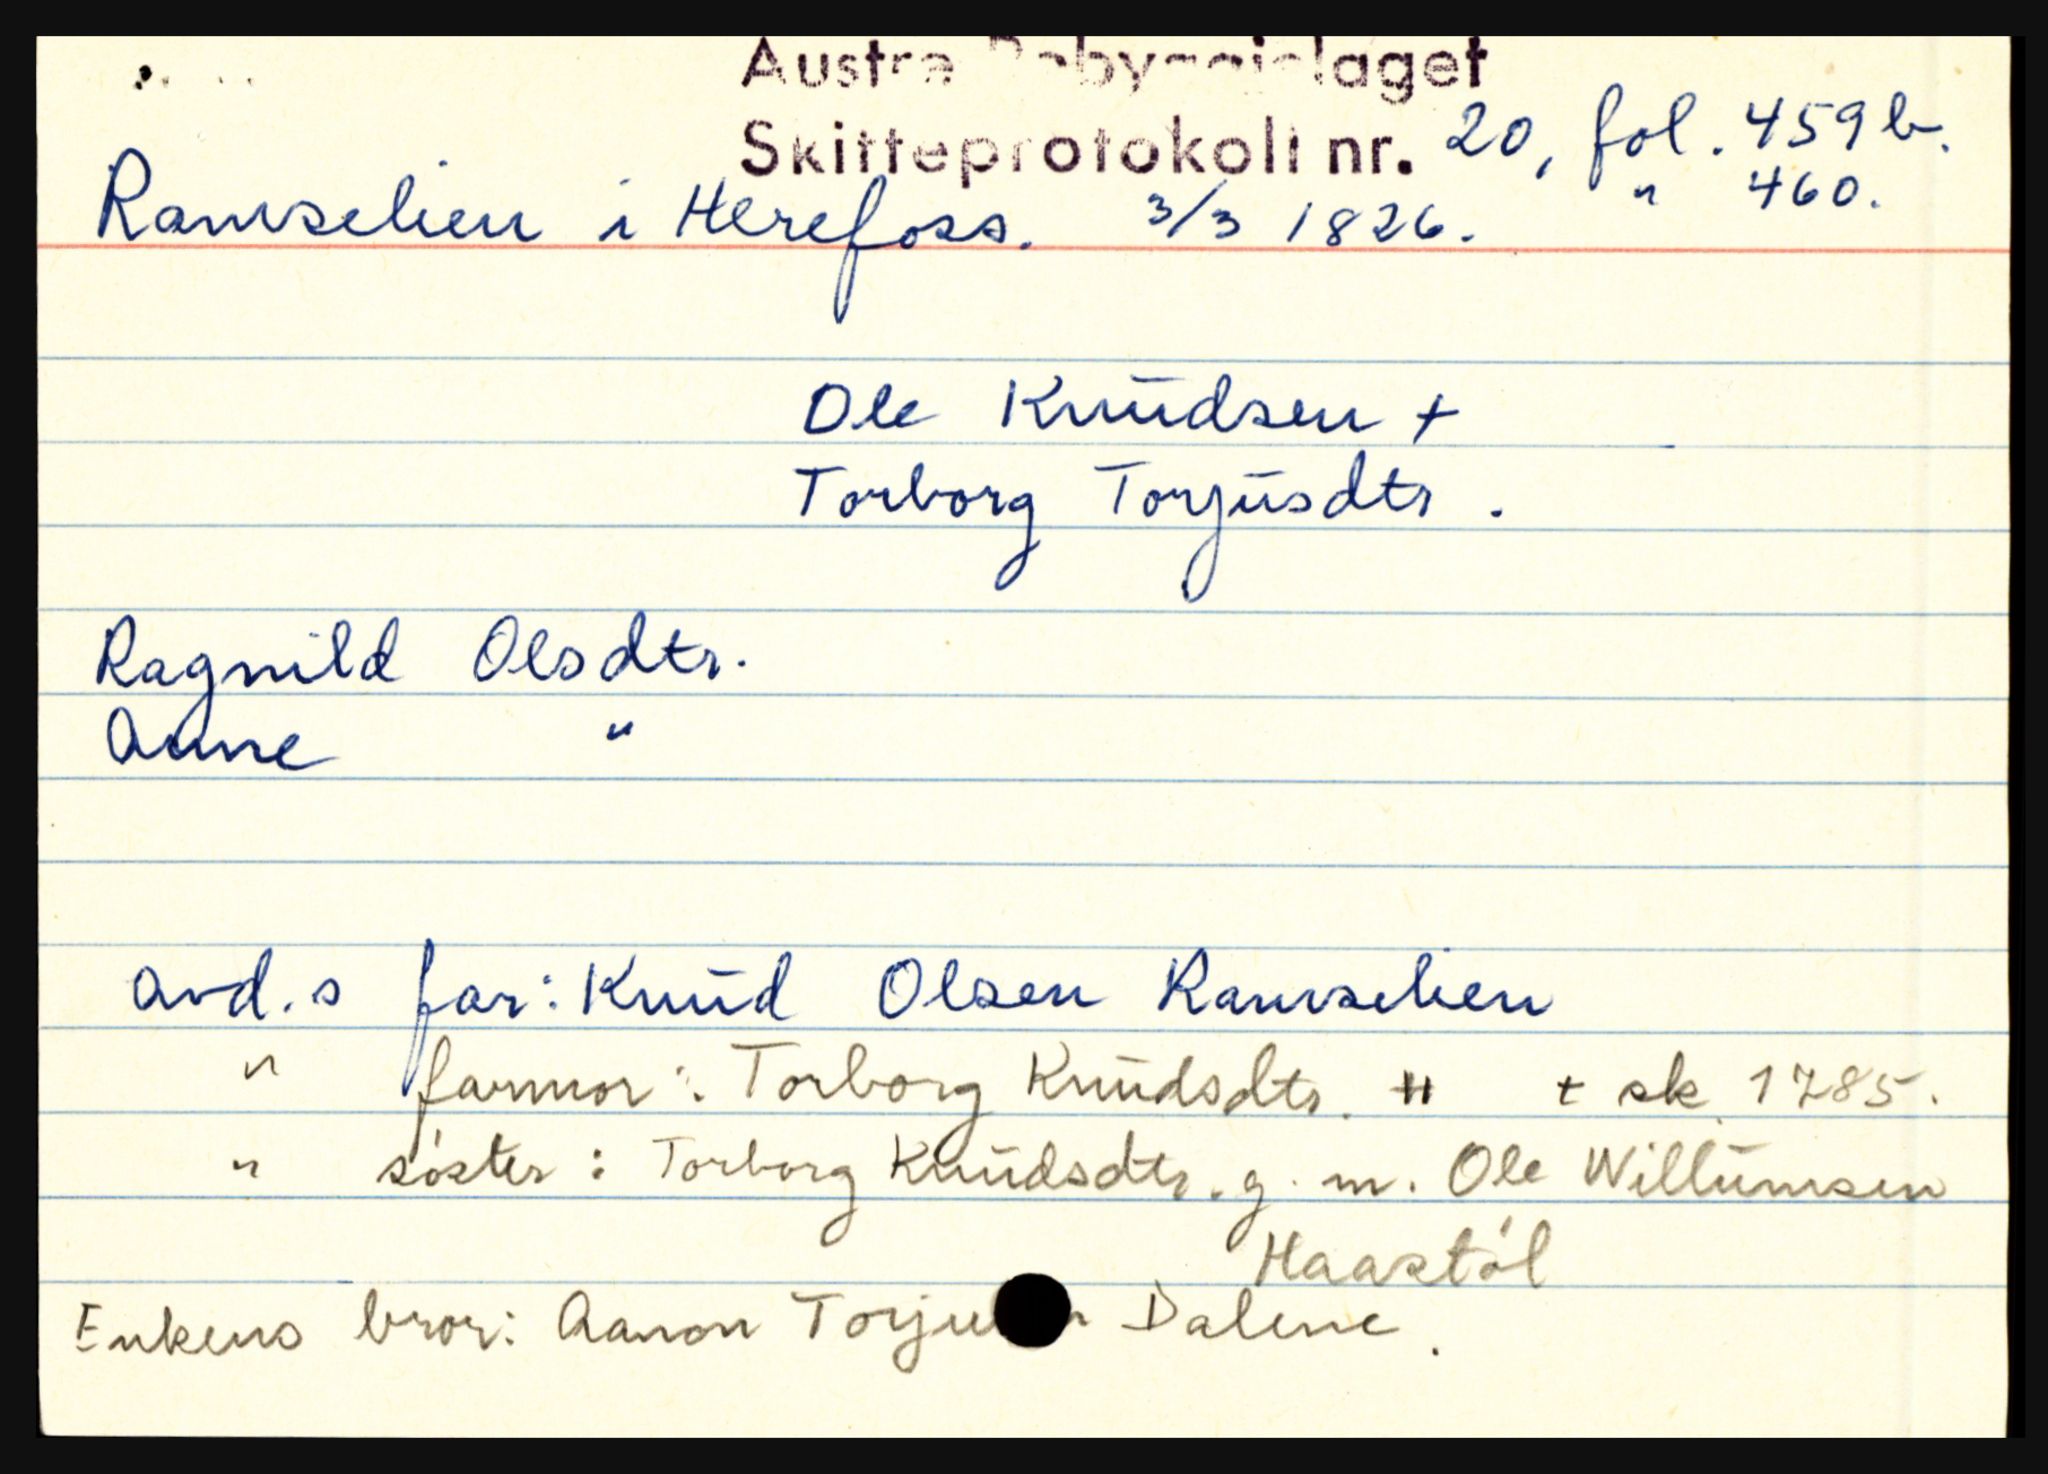 Austre Råbyggjelaget
Skifteprotokoll nr. 20, fol. 459 b.
Ramselien i Herefoss. 3/3 1826. " 460.
Ole Knudsen +
Torborg Torjusdtr.
Ragnild Olsdtr.
Anne "
avd.s far: Knud Olsen Ramselien
" farmor: Torborg Knudsdtr. " + sk. 1785.
" søster: Torborg Knudsdtr. g. m. Ole Willumsen
Haastøl
Enkens bror: Aanon Dalene.